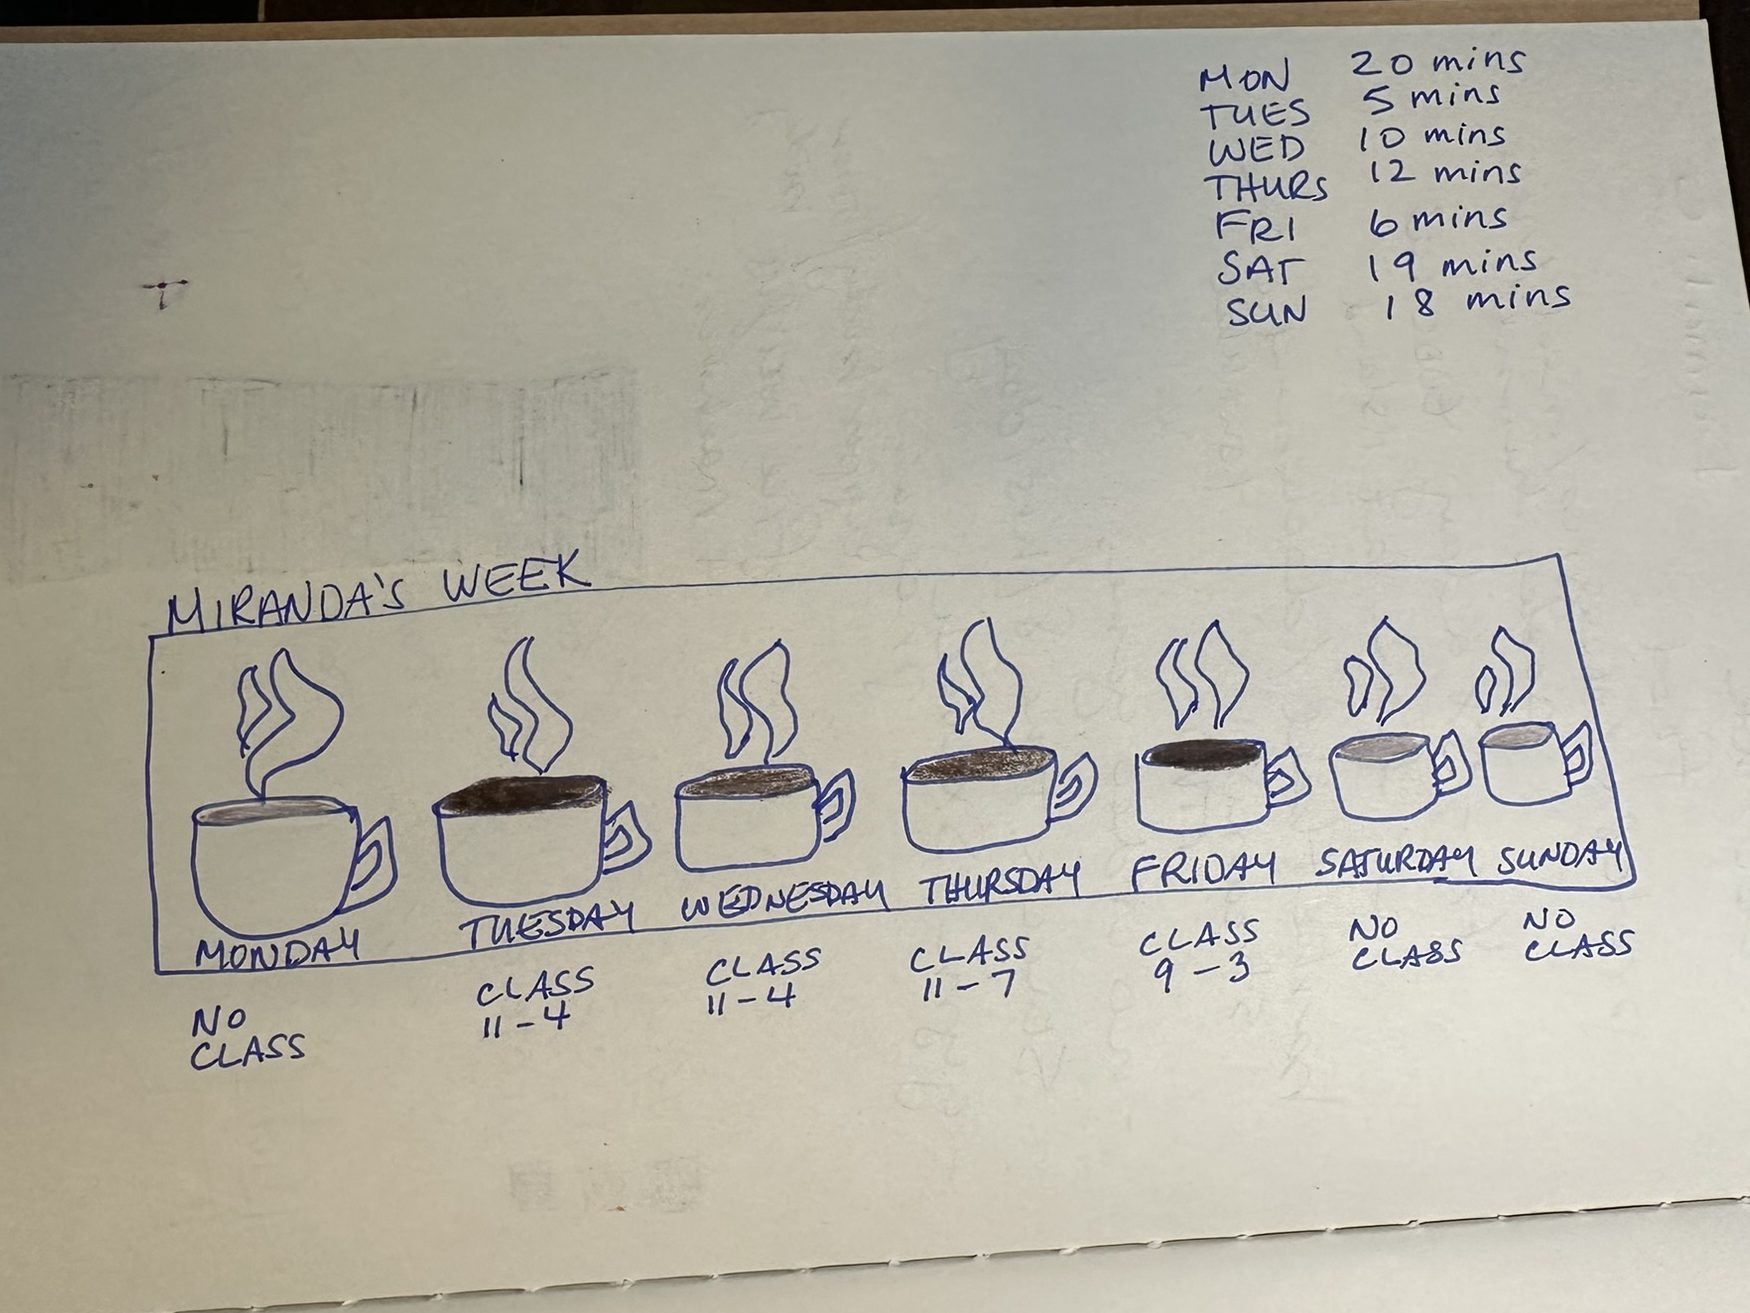 MON 20 mins
TUES 5 mins
WED 10 mins
THURS 12 mins
FRI 6 mins
SAT 19 mins
SUN 18 mins
MIRANDA'S WEEK
MONDAY
TUESDAY
WEDNESDAY
THURSDAY
FRIDAY
SATURDAY
SUNDAY
NO
CLASS
CLASS
11-4
CLASS
11-4
CLASS
11-7
CLASS
9-3
NO
CLASS
NO
CLASS